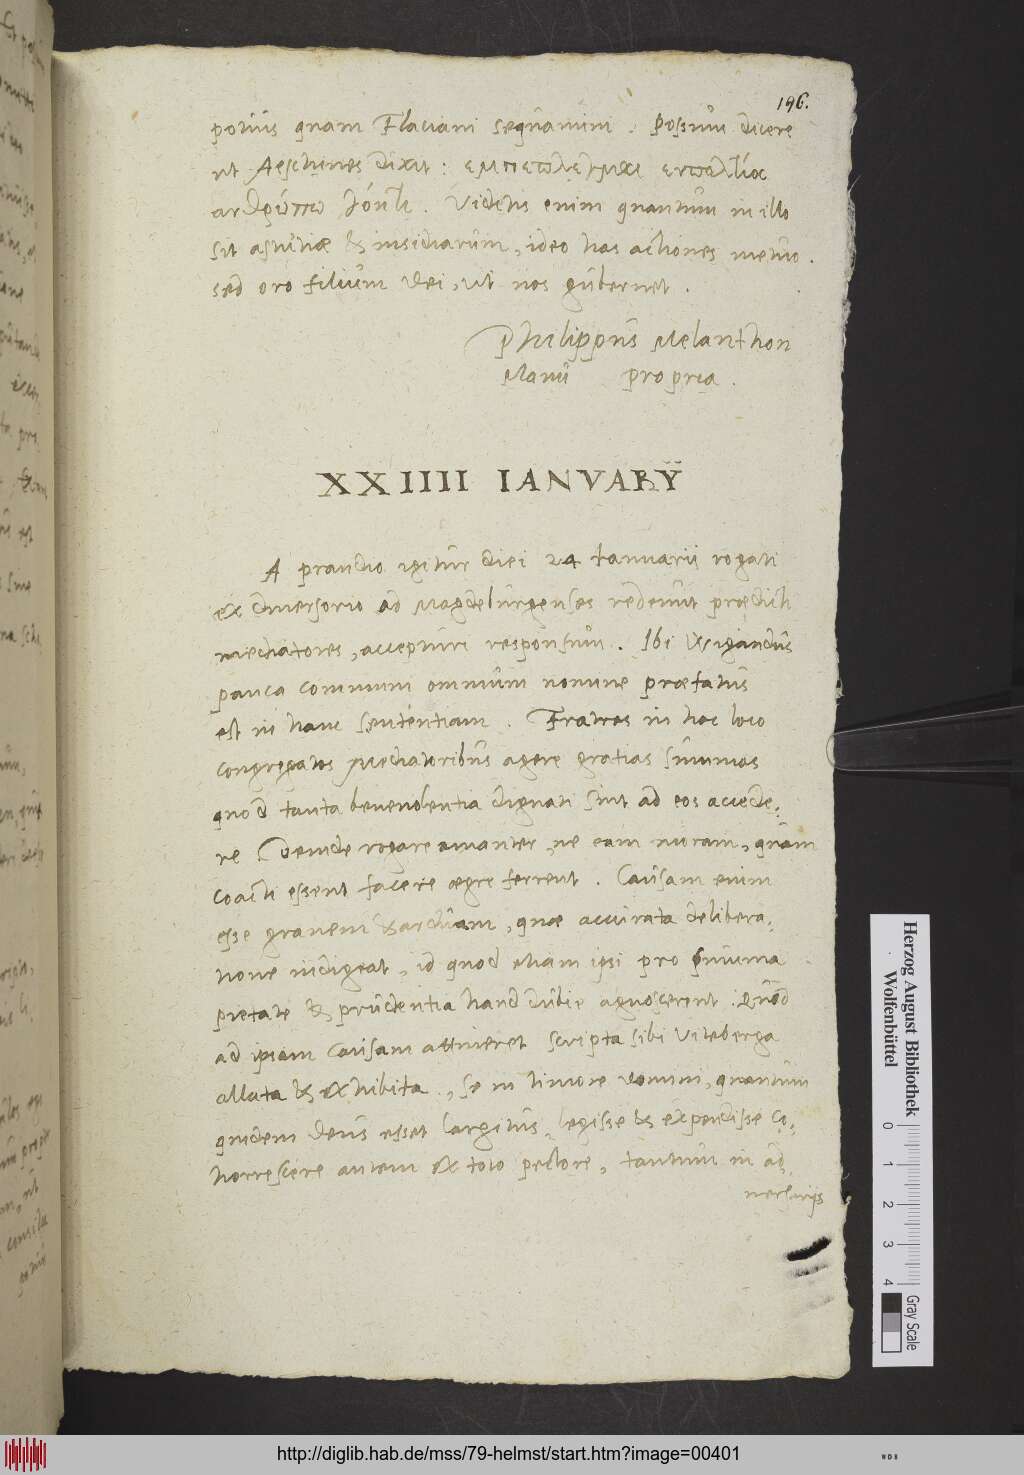 196.
potius quam Flaciani sequamini. Possum dicere
ut Aeschines dixit:
Videtis enim quantum in illo
sit astutiae & insidiarum, ideo has actiones metuo.
sed oro filium dei, ut nos gubernet.
Philippus Melanthon
Manu propria.
XXIIII IANVARŸ
A prandio igitur diei 24 Ianuarii rogati
ex diuersorio ad Magdeburgenses redeunt praedicti
mediatores, accepturi responsum. Ibi Wigandus
pauca communi omnium nomine praefatus
est in hanc sententiam. Fratres in hoc loco
congregatos Mediatoribus agere gratias summas
quod tanta beneuolentia dignati sint ad eos accede-
re. Deinde rogare amanter, ne eam moram, quam
coacti essent facere aegre ferrent. Causam enim
esse grauem & arduam, quae accurata delibera-
tione indigeat, id quod etiam ipsi pro summa
pietate & prudentia haud dubie agnoscerent. Quod
ad ipsam causam attineret scripta sibi Viteberga
allata & exhibita, se in timore domini, quantum
quidem deus esset largitus, legisse & expendisse co-
horrescere autem ex toto pectore, tantum in ad
uersarijs
Herzog August Bibliothek
Wolfenbüttel
0 1 2 3 4
Gray Scale
http://diglib.hab.de/mss/79-helmst/start.htm?image=00401